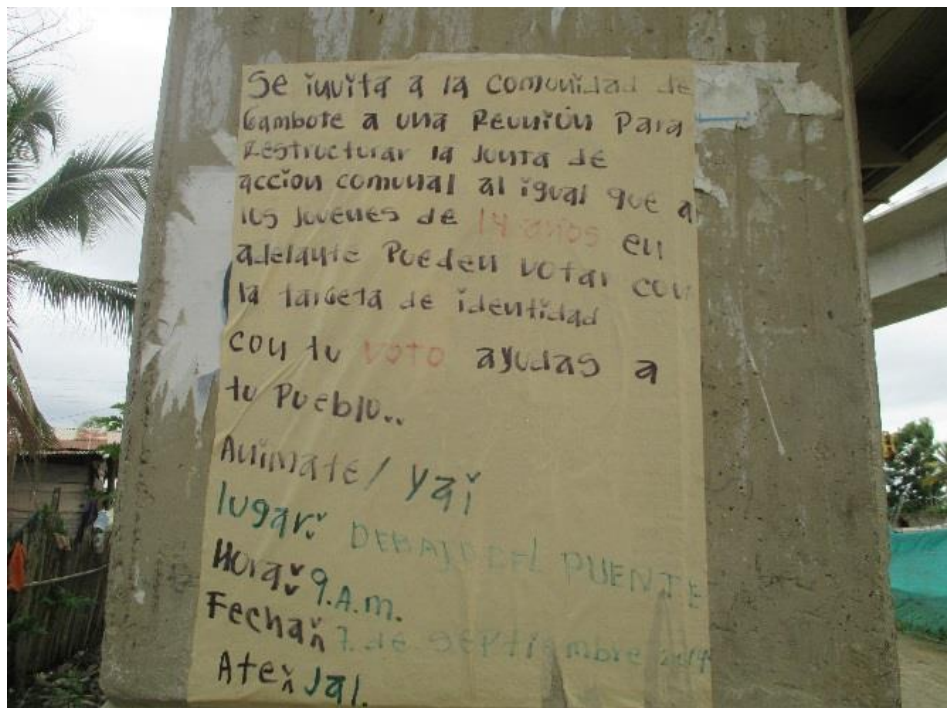 Se invita a la comunidad de
Gambote a una Reunión Para
Restructurar la Junta de
accion comunal al igual que a
los jovenes de 14 años en
adelante Pueden votar con
la targeta de identidad
con tu voto ayudas a
tu Pueblo..
Animate / Yai
lugar: DEBAJO DEL PUENTE
Hora: 9.A.m.
Fecha: 7 de septiembre 2014
Ate: Jal.